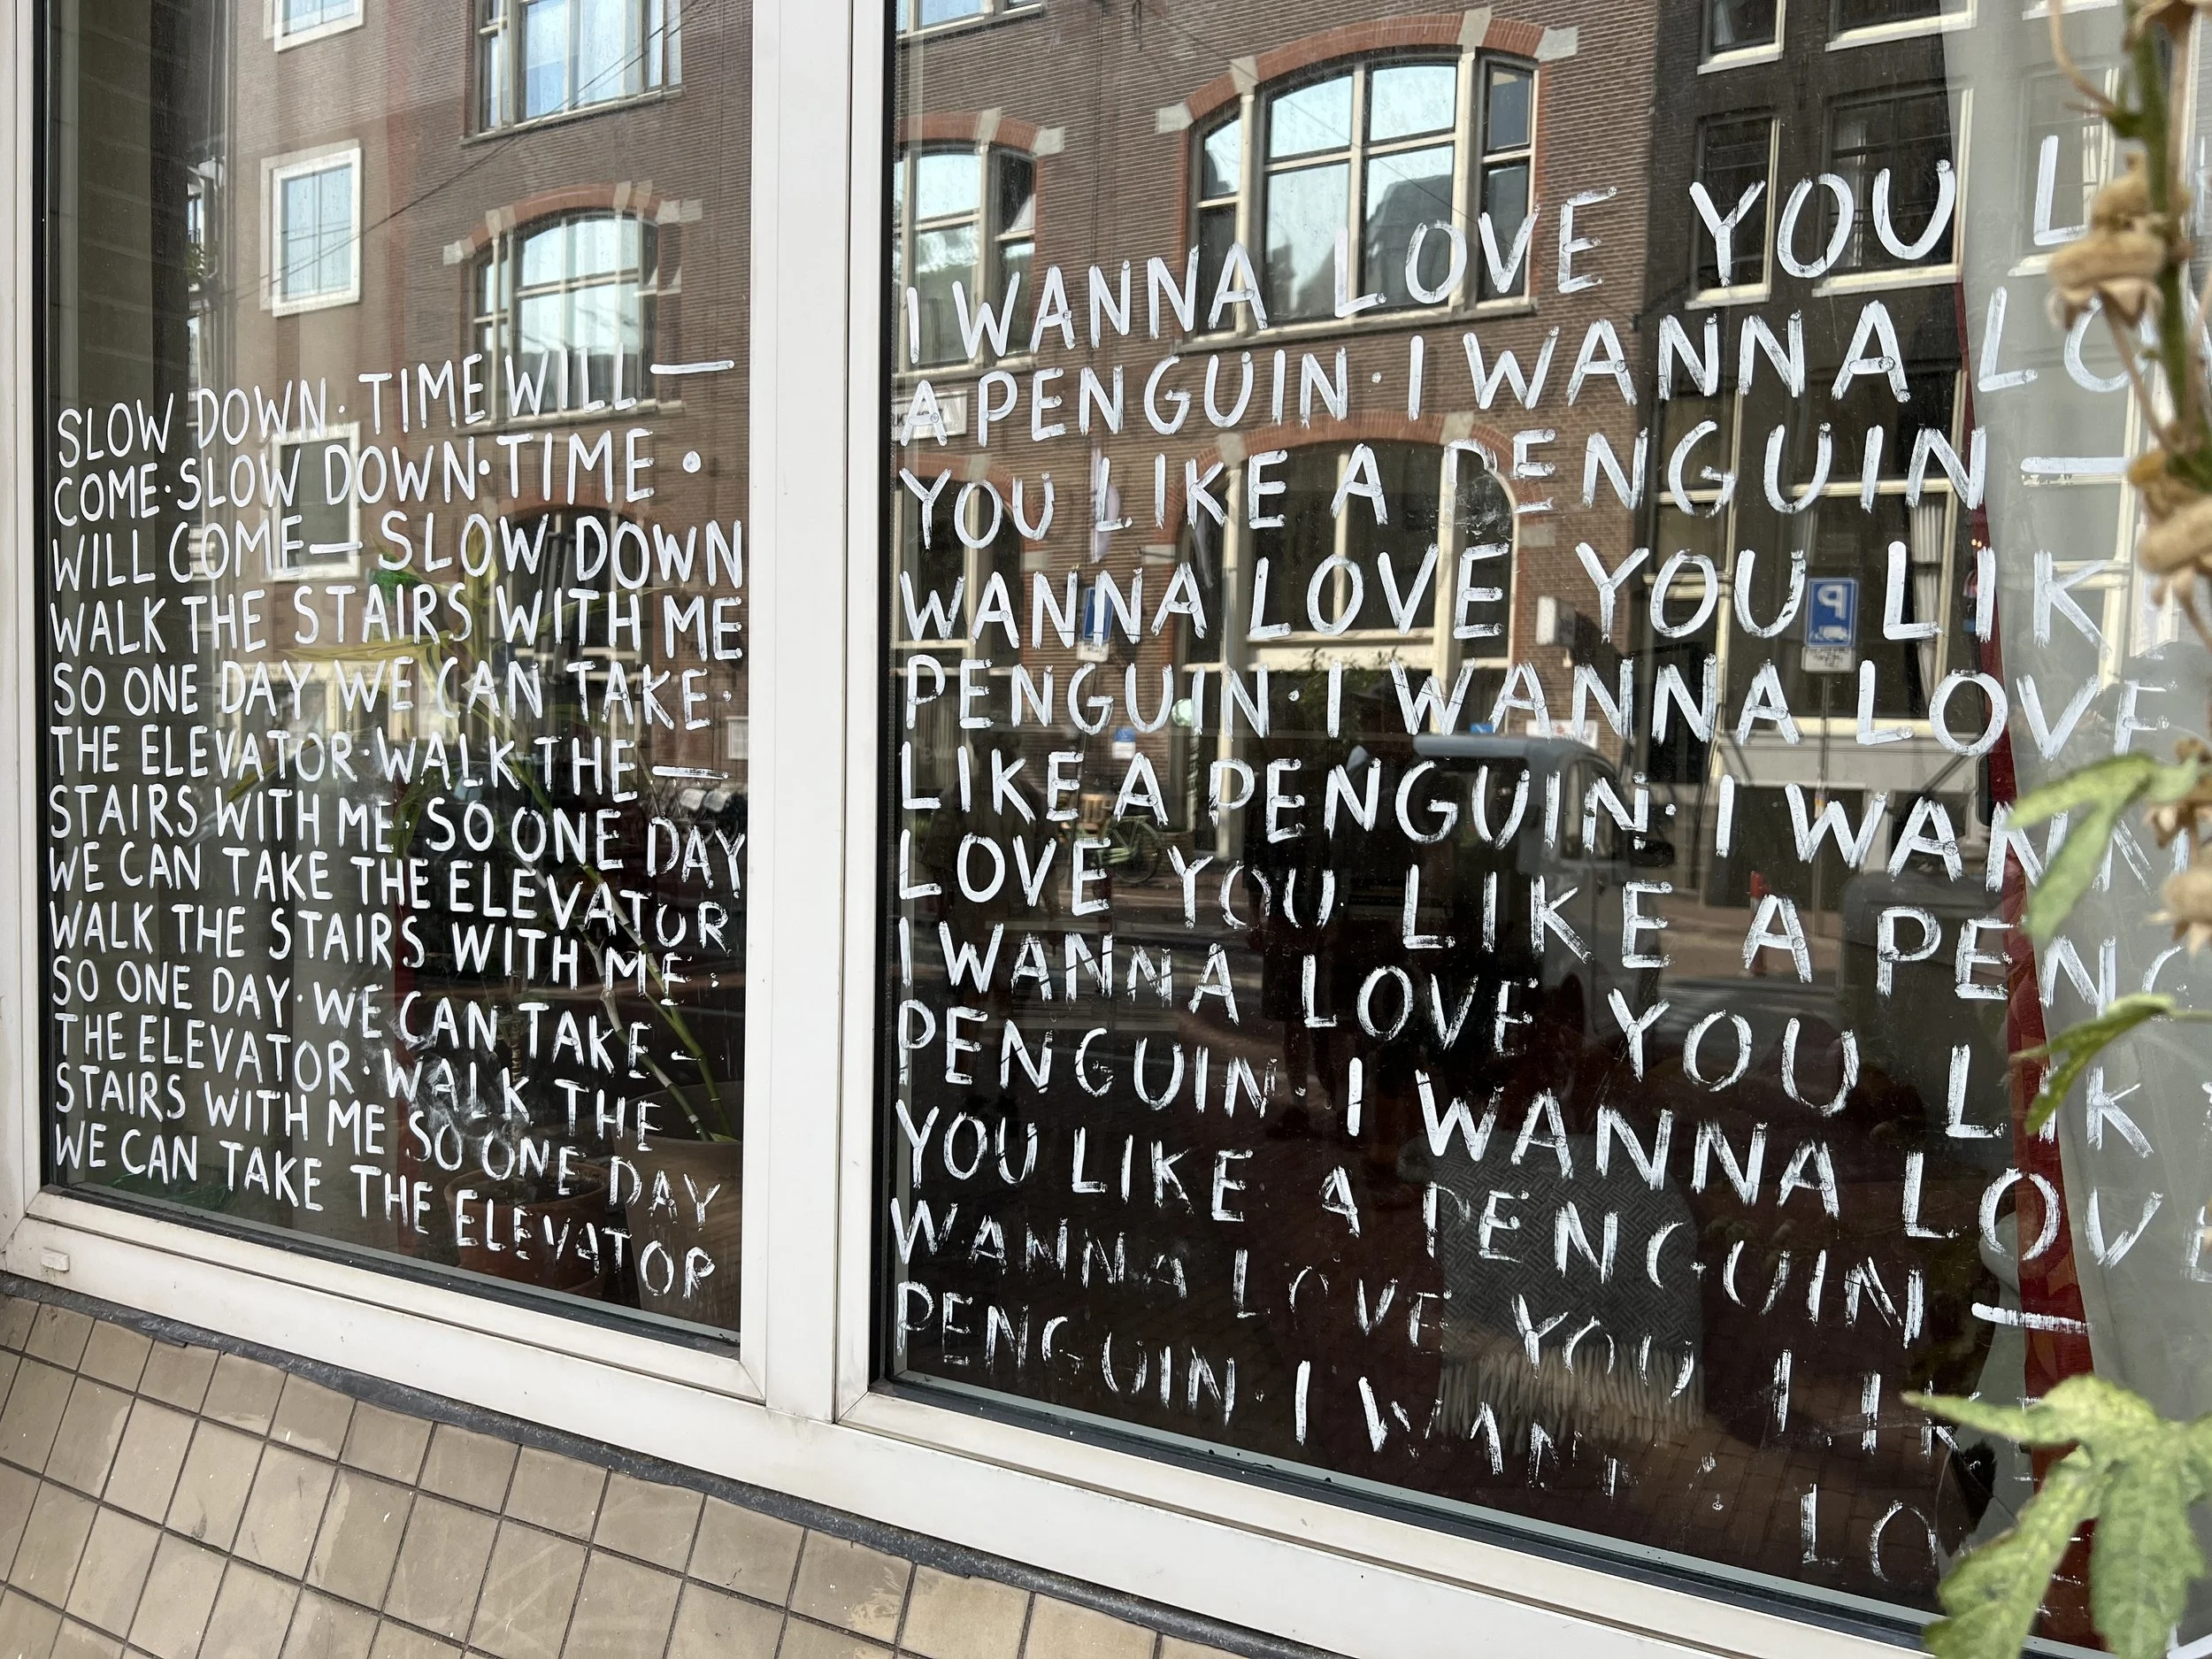 SLOW DOWN· TIME WILL —
COME·SLOW DOWN·TIME ·
WILL COME— SLOW DOWN
WALK THE STAIRS WITH ME
SO ONE DAY WE CAN TAKE·
THE ELEVATOR·WALK THE —
STAIRS WITH ME· SO ONE DAY
WE CAN TAKE THE ELEVATOR
WALK THE STAIRS WITH ME·
SO ONE DAY· WE CAN TAKE-
THE ELEVATOR·WALK THE
STAIRS WITH ME SO ONE DAY
WE CAN TAKE THE ELEVATOR
I WANNA LOVE YOU L
A PENGUIN·I WANNA LO
YOU LIKE A PENGUIN —
WANNA LOVE YOU LIK
PENGUIN·I WANNA LOVE
LIKE A PENGUIN· I WANN
LOVE YOU LIKE A PENG
I WANNA LOVE YOU LIK
PENGUIN· I WANNA LOVE
YOU LIKE A PENGUIN —
WANNA LOVE YOU LIK
PENGUIN· I WANNA LO
P